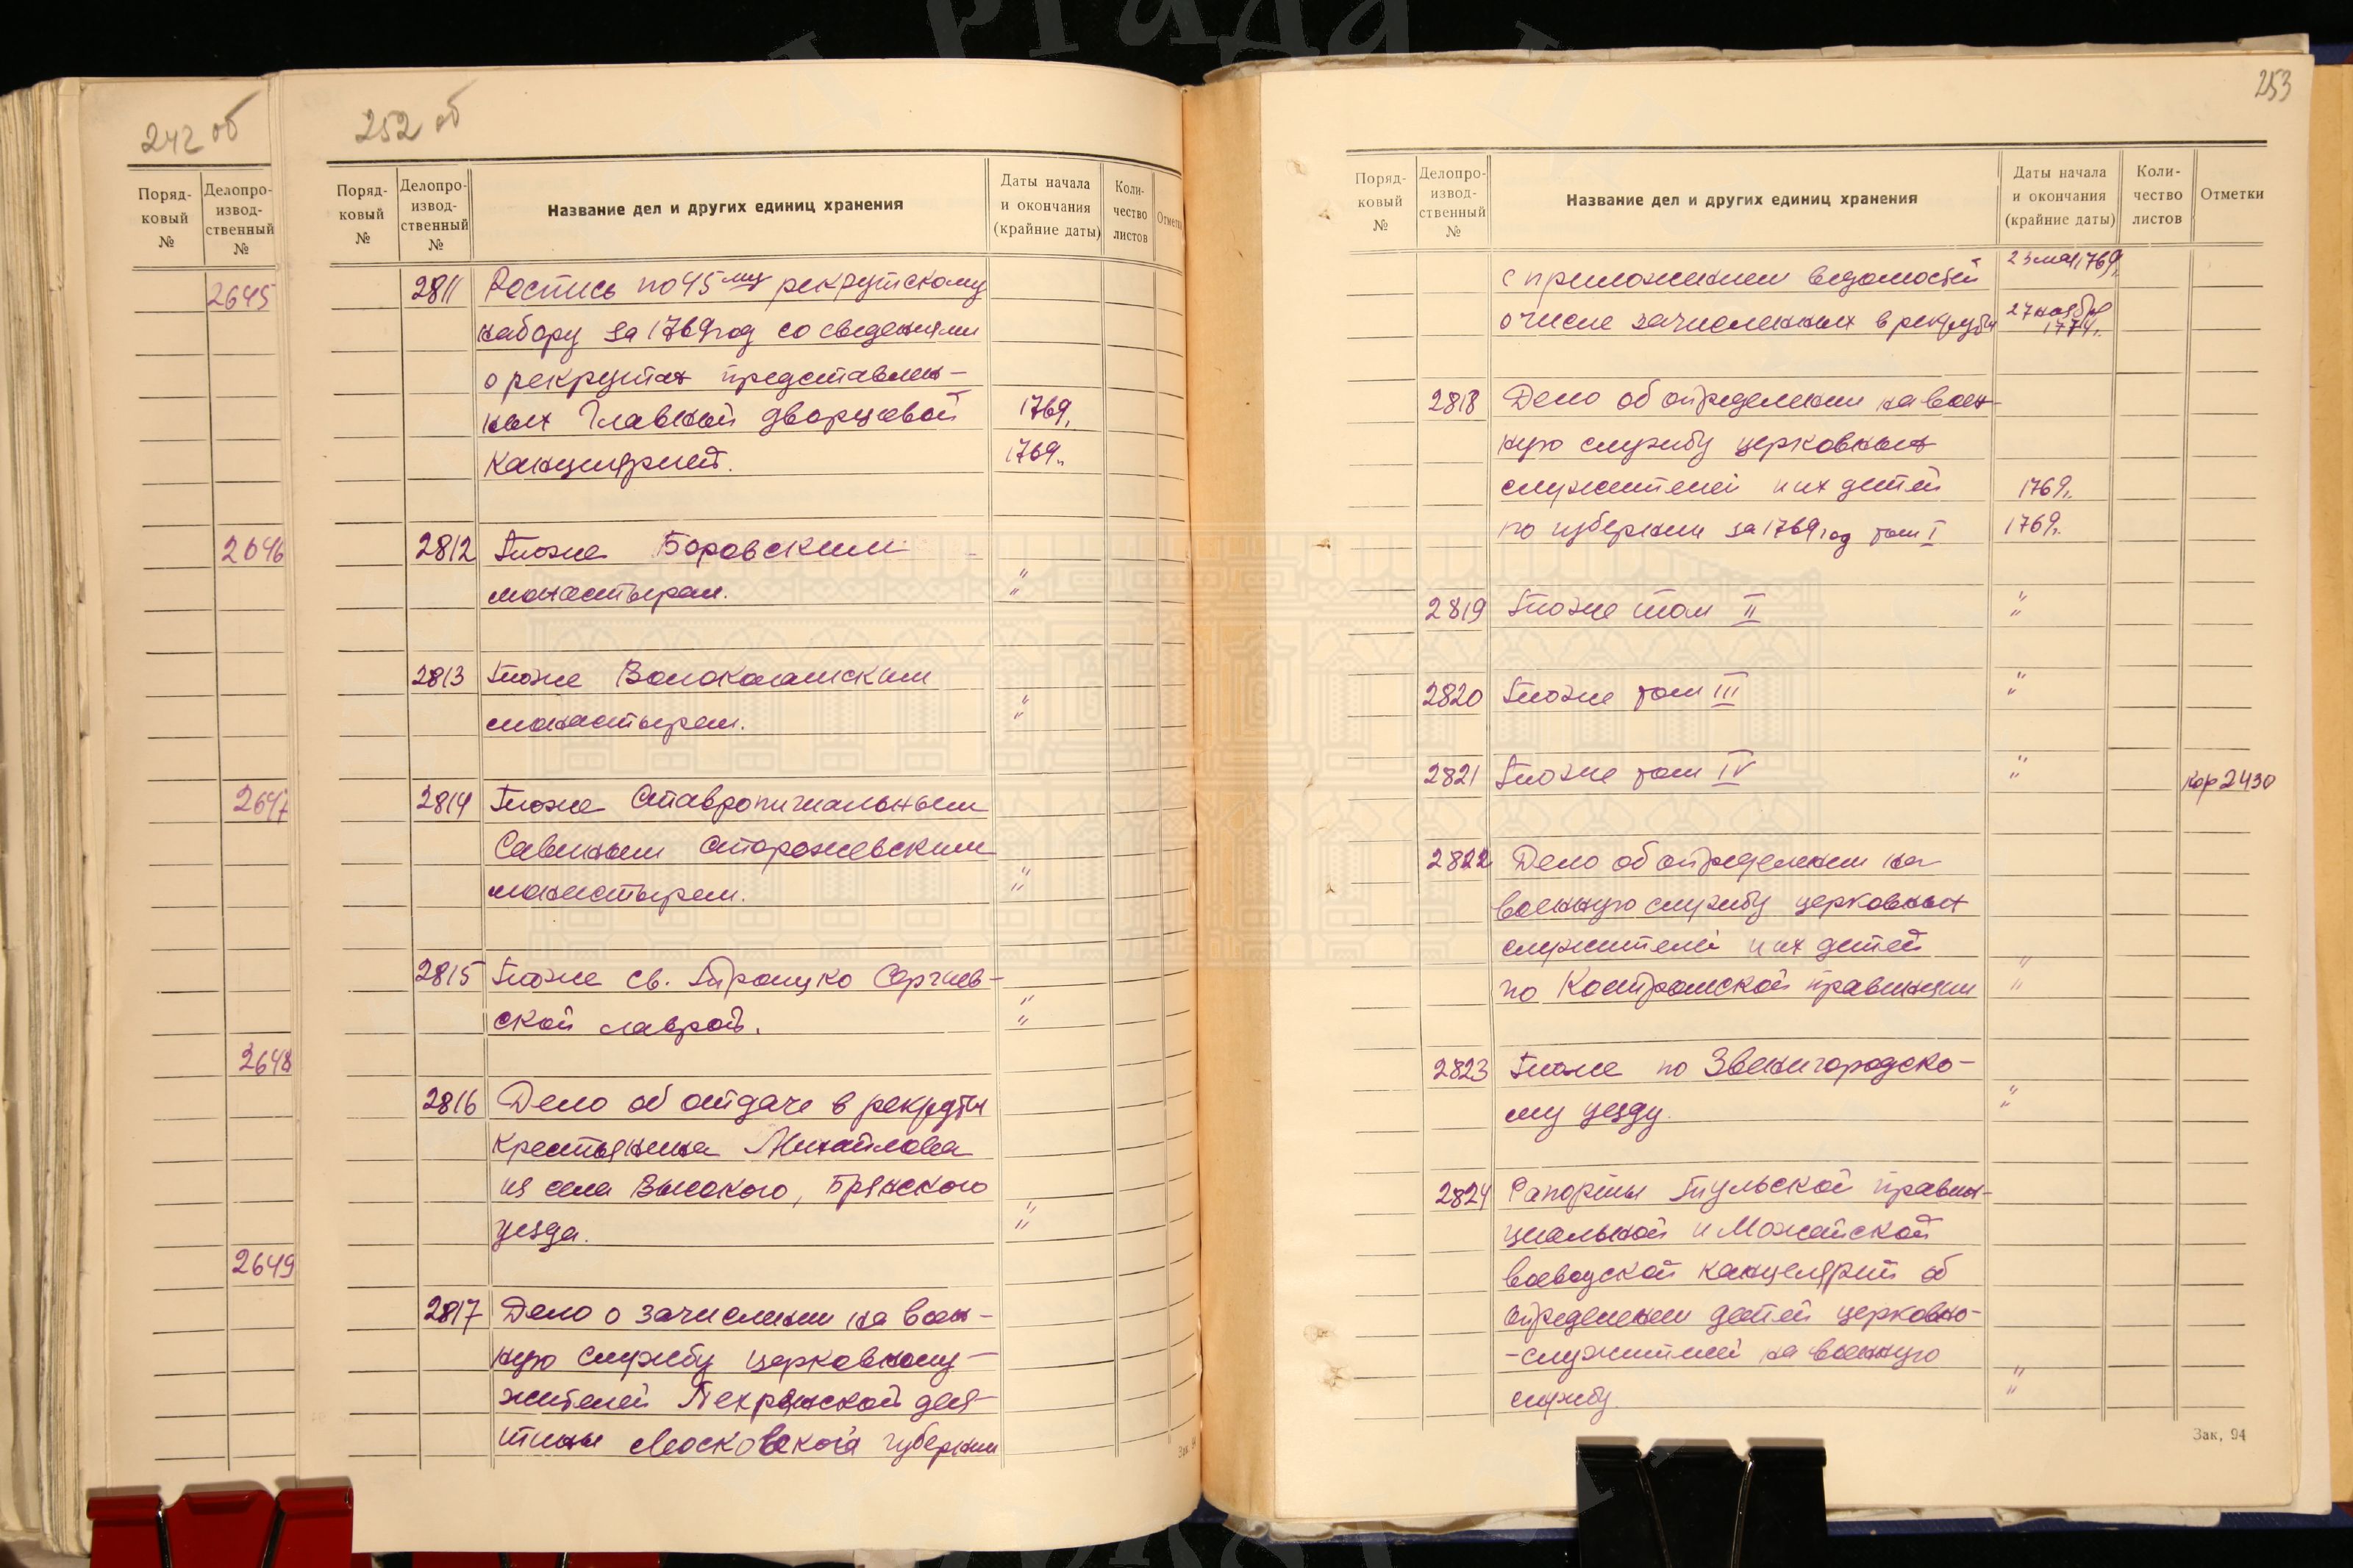 242 об
Поряд-
ковый
№
Делопро-
извод-
ственный
№
2645
2646
2647
2648
2649
252 об
Поряд-
ковый
№
Делопро-
извод-
ственный
№
Название дел и других единиц хранения
Даты начала
и окончания
(крайние даты)
Коли-
чество
листов
Отметки
2811 Роспись по 45му рекрутскому
набору за 1769 год со сведениями
о рекрутах представлен-
ных Главной дворцовой 1769г.
канцелярией. 1769г.
2812 Тоже Боровским
монастырем. " "
2813 Тоже Волоколамским
монастырем. " "
2814 Тоже Ставропигиальным
Савиным Сторожевским
монастырем. " "
2815 Тоже св. Троицко Сергиев-
ской лаврой. " "
2816 Дело об отдаче в рекруты
крестьянина Михайлова
из села Высокого, Брянского
уезда. " "
2817 Дело о зачислении на воен-
ную службу церковнослу-
жителей Пехрянской деся-
тины Московской губернии
Зак. 94
253
Поряд-
ковый
№
Делопро-
извод-
ственный
№
Название дел и других единиц хранения
Даты начала
и окончания
(крайние даты)
Коли-
чество
листов
Отметки
с приложением ведомостей 23 мая 1769г.
о числе зачисленных в рекруты 27 ноября
1774г.
2818 Дело об определении на воен-
ную службу церковных
служителей и их детей 1769г.
по губернии за 1769 год том I 1769г.
2819 Тоже том II " "
2820 Тоже том III " "
2821 Тоже том IV " " кор 2430
2822 Дело об определении на
военную службу церковных
служителей и их детей "
по Костромской провинции "
2823 Тоже по Звенигородско-
му уезду. " "
2824 Рапорты Тульской провин-
циальной и Можайской
воеводской канцелярий об
определении детей церковно-
-служителей на военную
службу. " "
Зак. 94